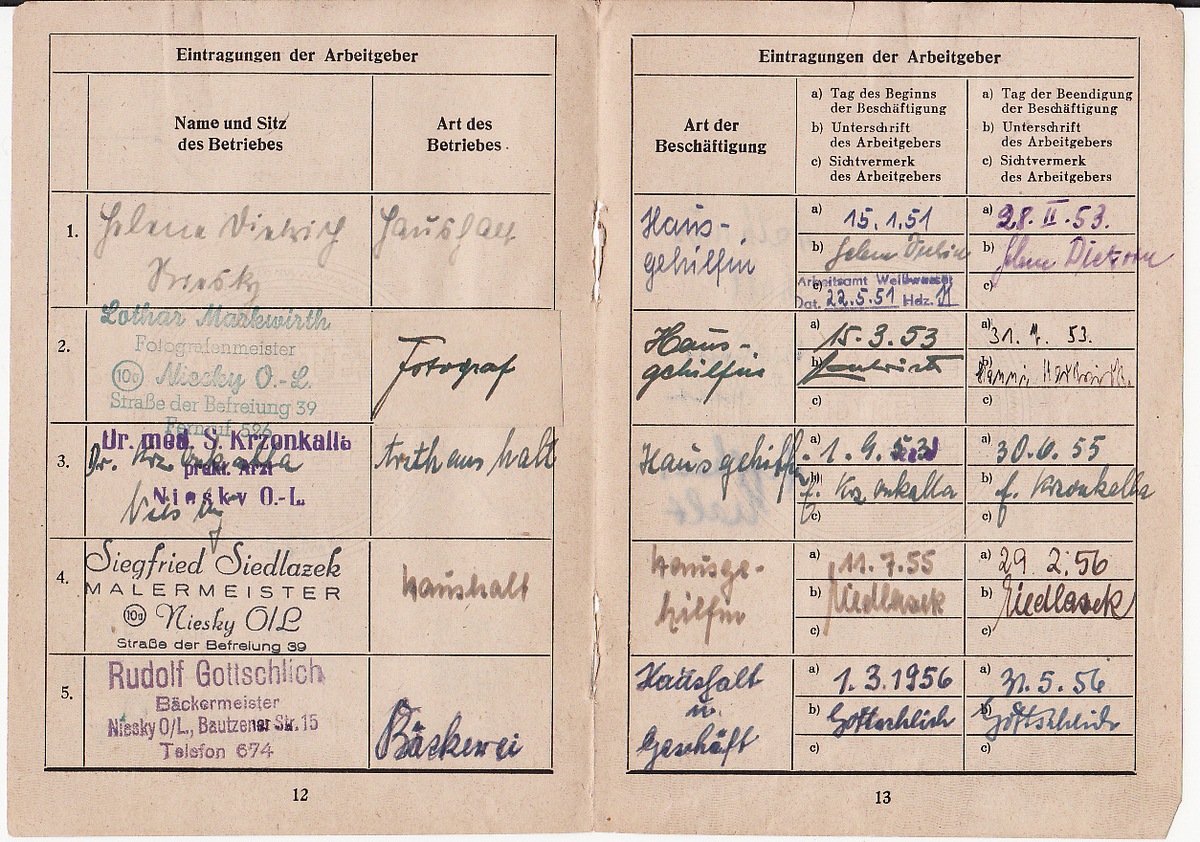 Eintragungen der Arbeitgeber
Name und Sitz
des Betriebes
Art des
Betriebes
1.
Helene Dietrich
Niesky
Haushalt
2.
Lothar Markwirth
Fotografenmeister
(10a) Niesky O.-L.
Straße der Befreiung 39
Fernruf 596
Fotograf
3.
Dr. med. S. Krzonkalla
Dr. Krzonkalla
prakt. Arzt
Niesky O.-L.
Arzthaushalt
4.
Siegfried Siedlazek
MALERMEISTER
(10a) Niesky O/L
Straße der Befreiung 39
Haushalt
5.
Rudolf Gottschlich
Bäckermeister
Niesky O/L., Bautzener Str. 15
Telefon 674
Bäckerei
12
Eintragungen der Arbeitgeber
Art der
Beschäftigung
a) Tag des Beginns
der Beschäftigung
b) Unterschrift
des Arbeitgebers
c) Sichtvermerk
des Arbeitgebers
a) Tag der Beendigung
der Beschäftigung
b) Unterschrift
des Arbeitgebers
c) Sichtvermerk
des Arbeitgebers
Haus-
gehilfin
a) 15.1.51
b) Helene Dietrich
c)
Arbeitsamt Weißwasser
Dat. 22.5.51 Hdz. 11
a) 28.II.53.
b) Helene Dietrich
c)
Haus-
gehilfin
a) 15.3.53
b)
c)
a) 31. 7. 53.
b)
c)
Hausgehilfin
a) 1.9.53
b) f. Krzonkalla
c)
a) 30.6.55
b) f. Krzonkalla
c)
Hausge-
hilfin
a) 11.7.55
b) Siedlazek
c)
a) 29.2.56
b) Siedlazek
c)
Haushalt
u.
Geschäft
a) 1.3.1956
b) Gottschlich
c)
a) 31.5.56
b) Gottschlich
c)
13